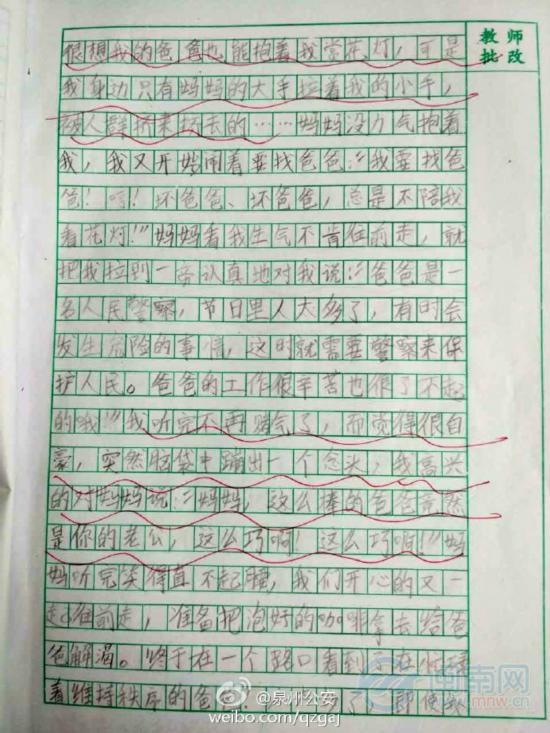 教师
批改
很想我的爸爸也能抱着我赏花灯，可是
我身边只有妈妈的大手拉着我的小手，
被人群挤来挤去的……妈妈没力气抱着
我，我又开始闹着要找爸爸："我要找爸
爸！哼！坏爸爸、坏爸爸，总是不陪我
看花灯！"妈妈看我生气不肯往前走，就
把我拉到一旁认真地对我说："爸爸是一
名人民警察，节日里人太多了，有时会
发生危险的事情，这时就需要警察来保
护人民。爸爸的工作很辛苦也很了不起
的哦！"我听完不再赌气了，而觉得很自
豪，突然脑袋中蹦出一个念头，我高兴
的对妈妈说："妈妈，这么棒的爸爸竟然
是你的老公，这么巧啊！这么巧啊！"妈
妈听完笑得直不起腰，我们开心的又一
起往前走，准备把泡好的咖啡拿去给爸
爸解渴。终于在一个路口看到正在
着维持秩序的爸爸！了即使
@泉州公安
weibo.com/qzgaj
闽南网
www.mnw.cn